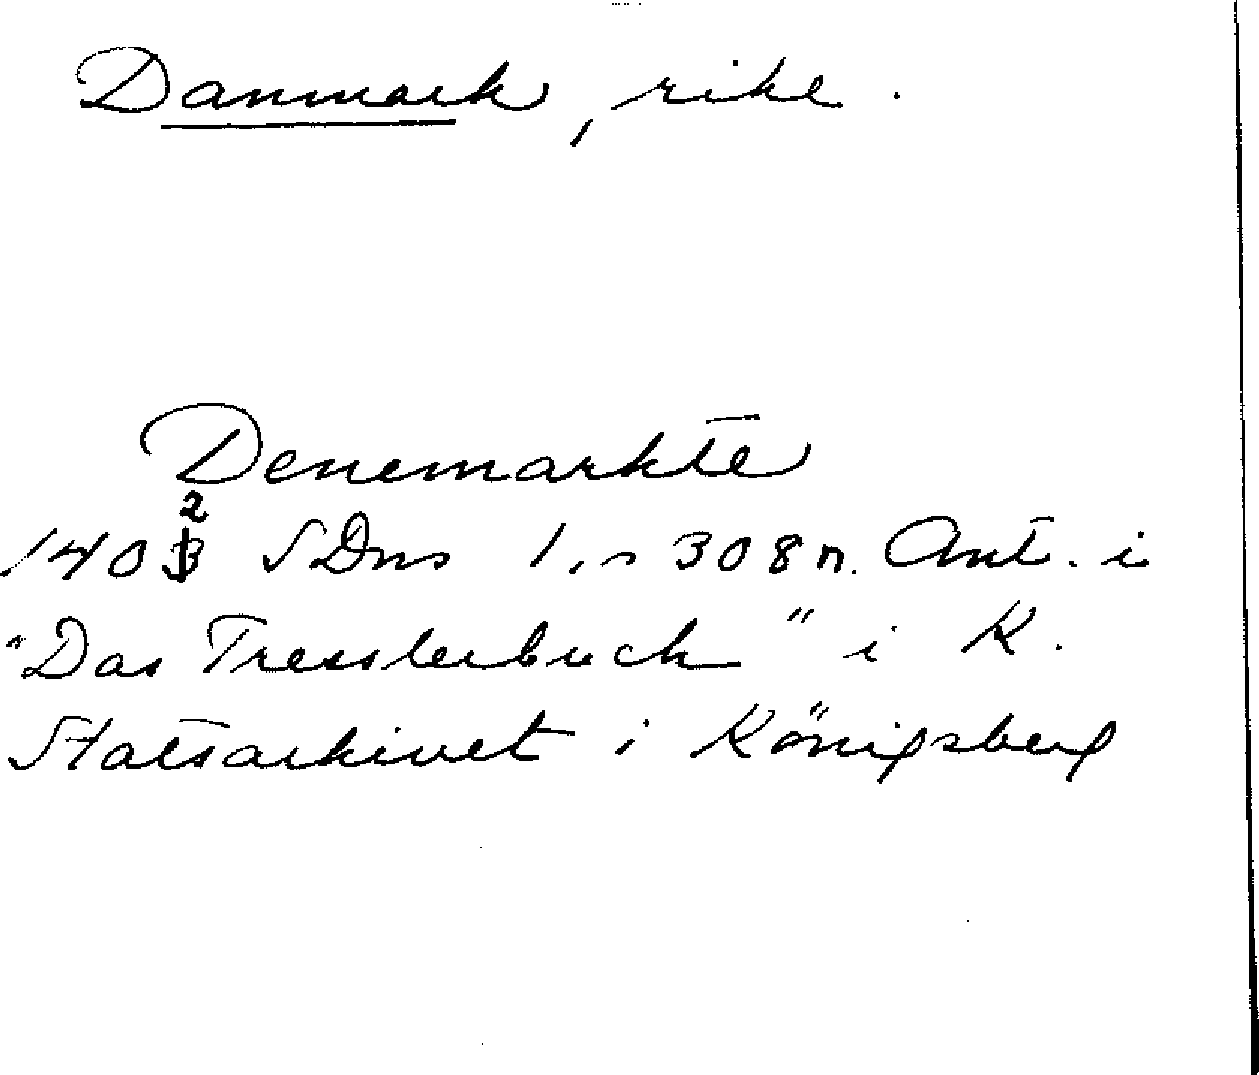 Danmark, rike.
Denemarkte
1402 SDns 1, s 308 n. Ant. i
"Das Tresslerbuch" i K.
Statsarkivet i Königsberg